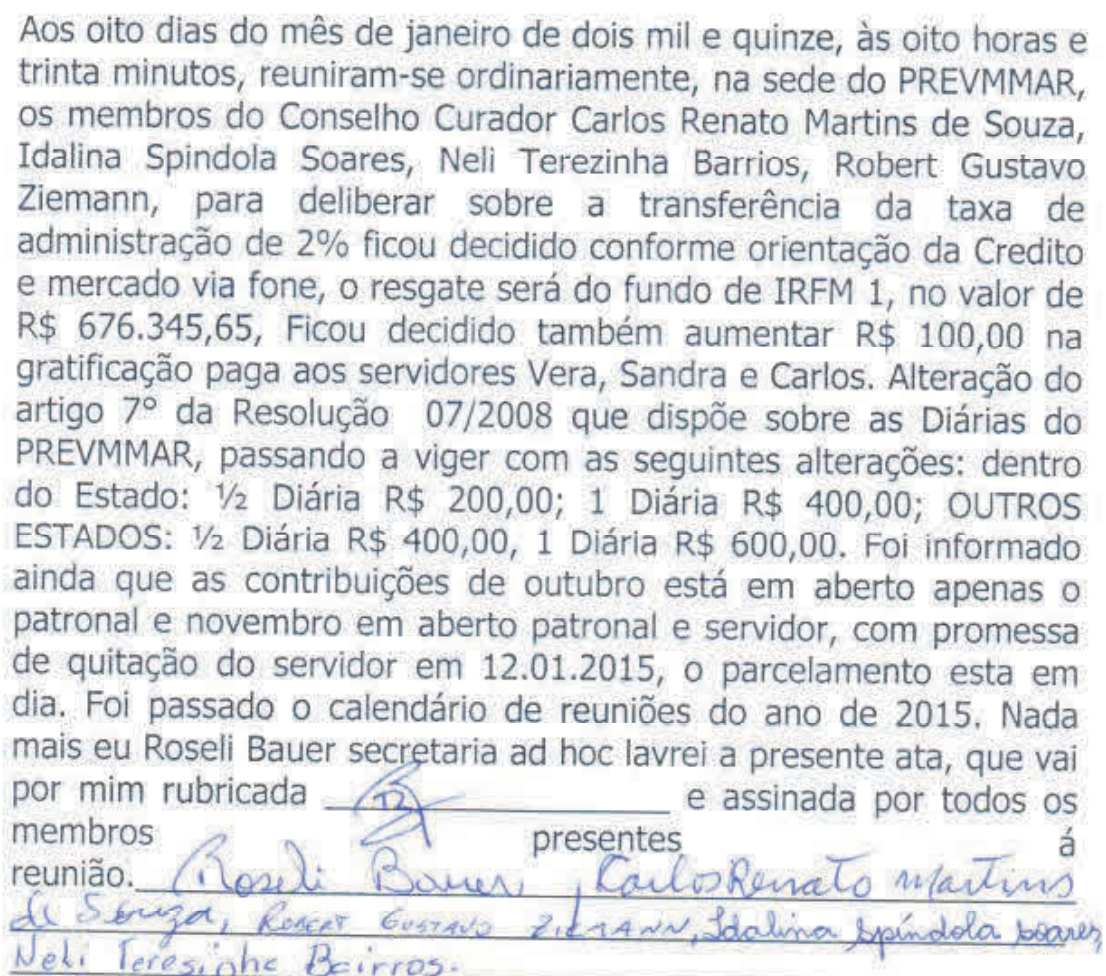 Aos oito dias do mês de janeiro de dois mil e quinze, às oito horas e
trinta minutos, reuniram-se ordinariamente, na sede do PREVMMAR,
os membros do Conselho Curador Carlos Renato Martins de Souza,
Idalina Spindola Soares, Neli Terezinha Barrios, Robert Gustavo
Ziemann, para deliberar sobre a transferência da taxa de
administração de 2% ficou decidido conforme orientação da Credito
e mercado via fone, o resgate será do fundo de IRFM 1, no valor de
R$ 676.345,65, Ficou decidido também aumentar R$ 100,00 na
gratificação paga aos servidores Vera, Sandra e Carlos. Alteração do
artigo 7º da Resolução 07/2008 que dispõe sobre as Diárias do
PREVMMAR, passando a viger com as seguintes alterações: dentro
do Estado: ½ Diária R$ 200,00; 1 Diária R$ 400,00; OUTROS
ESTADOS: ½ Diária R$ 400,00, 1 Diária R$ 600,00. Foi informado
ainda que as contribuições de outubro está em aberto apenas o
patronal e novembro em aberto patronal e servidor, com promessa
de quitação do servidor em 12.01.2015, o parcelamento esta em
dia. Foi passado o calendário de reuniões do ano de 2015. Nada
mais eu Roseli Bauer secretaria ad hoc lavrei a presente ata, que vai
por mim rubricada e assinada por todos os
membros presentes á
reunião. Roseli Bauer, Carlos Renato Martins
de Souza, Robert Gustavo Ziemann, Idalina Spíndola Soares,
Neli Teresinha Bairros.